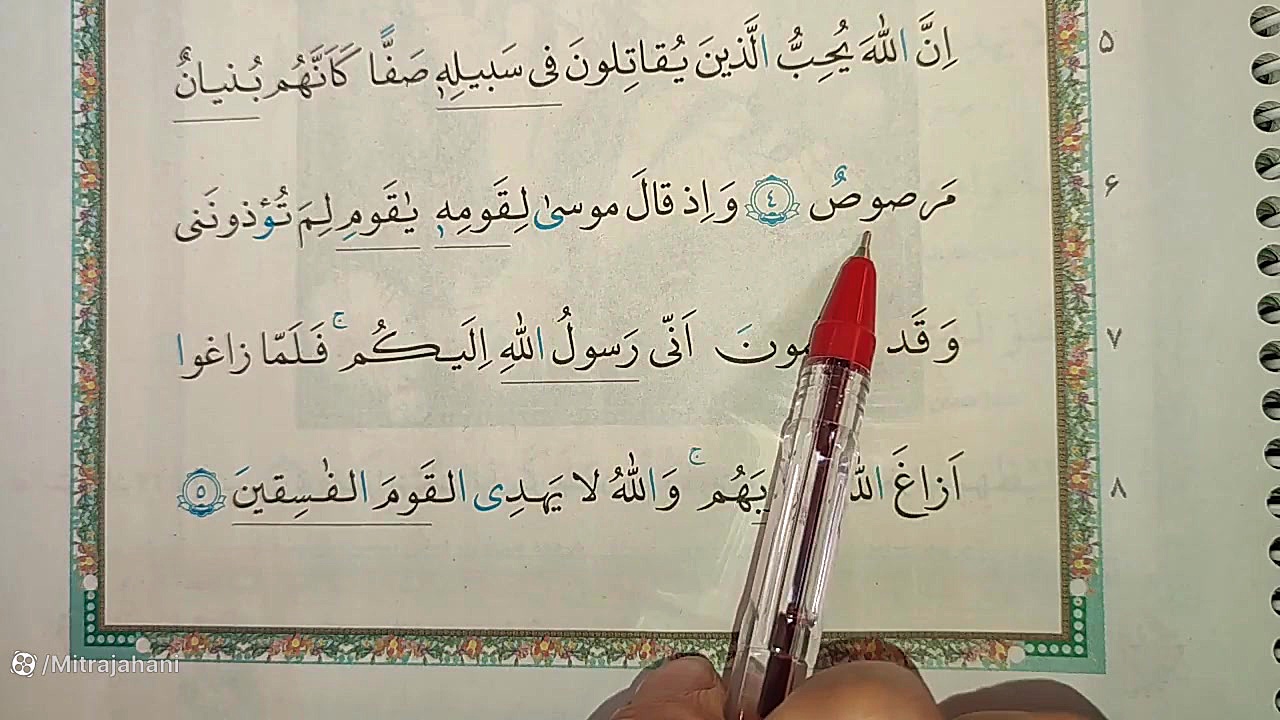 اِنَّ اللهَ یُحِبُّ الَّذینَ یُقاتِلونَ فی سَبیلِهٖ صَفًّا کَاَنَّهُم بُنیانٌ ۵
مَرصوصٌ ٤ وَ اِذ قالَ موسیٰ لِقَومِهٖ یٰقَومِ لِمَ تُؤذونَنی ۶
وَ قَد اَنّی رَسولُ اللهِ اِلَیکُم ۚ فَلَمّا زاغوا ۷
اَزاغَ وَاللهُ لا یَهدِی القَومَ الفٰسِقینَ ٥ ۸
/Mitrajahani